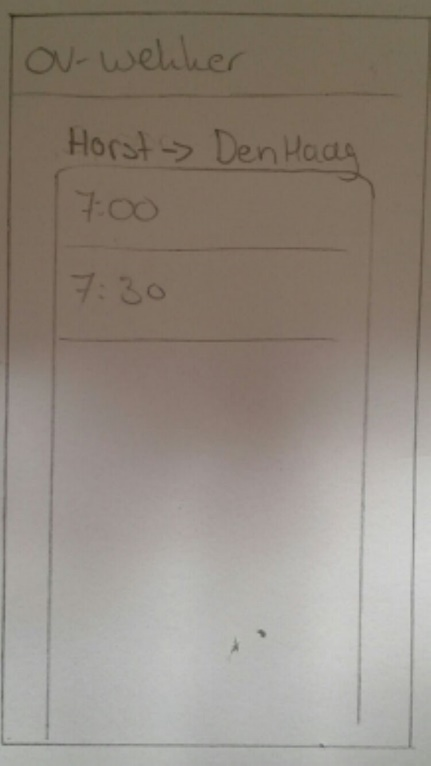 OV-wekker
Horst -> Den Haag
7:00
7:30